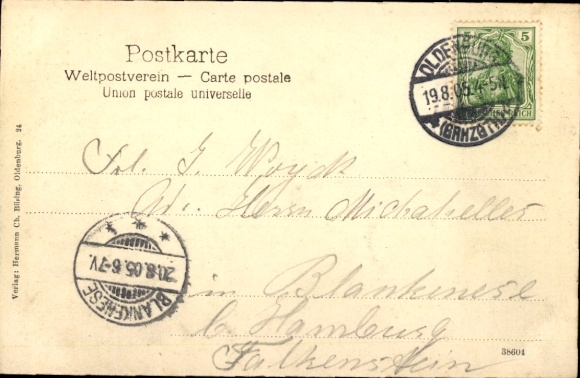 Postkarte
Weltpostverein — Carte postale
Union postale universelle
5
OLDENBURG
19.8.05.4-5N.
* (GRHZGTH.)
REICH
Frl. J. Woyck
Adr. Herrn Michahelles
in Blankenese
b. Hamburg
Falkenstein
* * *
20.8.05.6-7V.
BLANKENESE
Verlag: Hermann Ch. Büsing, Oldenburg. 24
38604